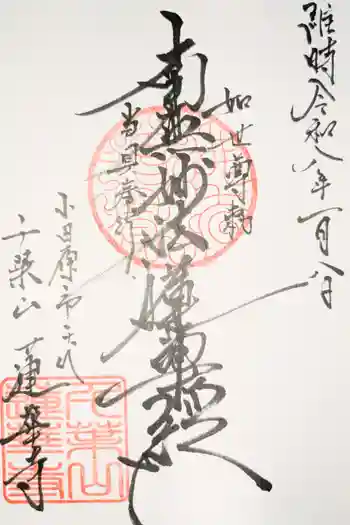 維時令和八年一月八日
如世尊勅
南無妙法蓮華経
当具奉行
小田原市
千葉山
蓮華寺
千葉山
蓮華寺